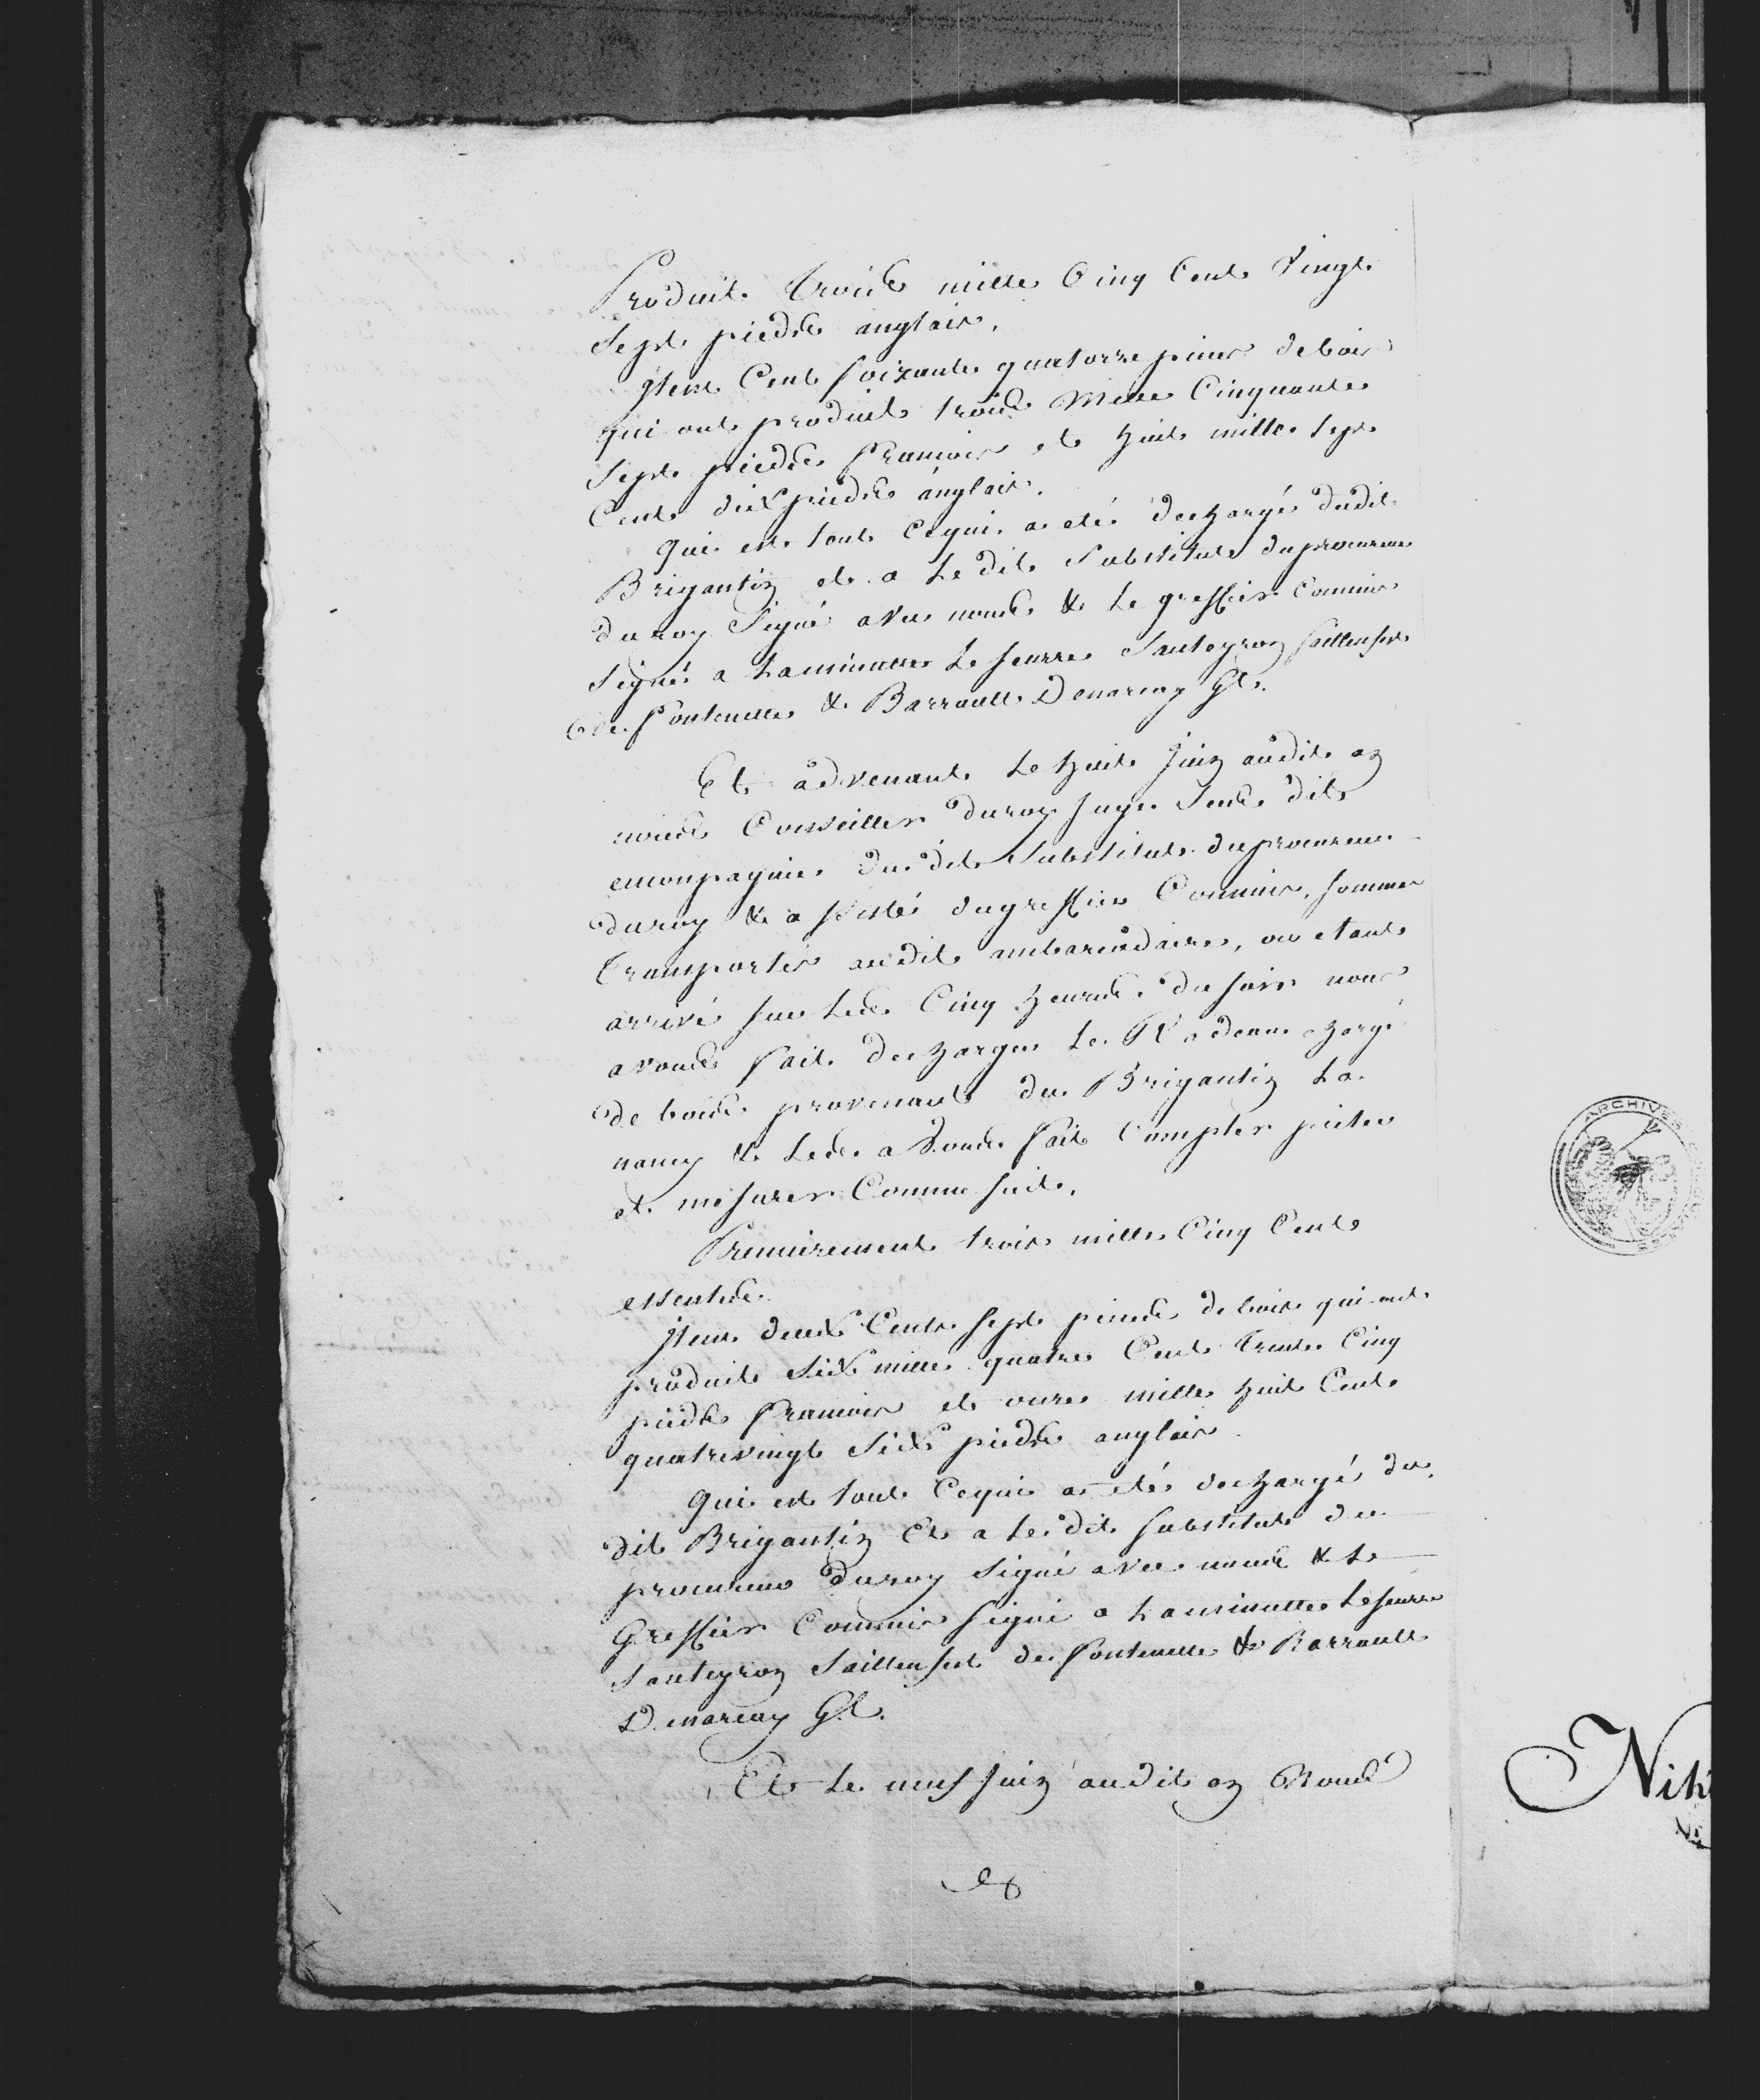 Produit trois mille Cinq Cent Vingt
Sept pieds anglais.
Item Cent soixante quatorze pieces de bois
qui ont produit trois Mille Cinquante
Sept pieds francois et huit mille sept
Cent dix pieds anglais.
Qui est tout Ce qui a eté dechargé dudit
Brigantin et a Le dit Substitut du procureur
du roy Signé avec nous & Le greffier Commis
Signé a La minutte Le feurre Santeyron
de fontenelle & Barrault Demarcay Gr.
Et àdvenant Le huit Juin audit an
nous Conseiller du roy Juge Sus dit
en compagnie du dit Substitut du procureur
du roy & assisté du greffier Commis, sommes
transportés audit embarcadaire, ou etant
arrivé sur Les Cinq heures du soir nous
avons fait decharger Le Radeau chargé
de bois provenant du Brigantin La
nancy & Les avons fait Compter
et mesurer Comme suit.
Premierement trois mille Cinq Cent
essentes.
Item deux Cents sept pieces de bois qui ont
produit Six mille quatre Cent trente Cinq
pieds francois et onze mille huit Cent
quatrevingt Six pieds anglais.
Qui est tout Ce qui a eté dechargé du
dit Brigantin Et a Le dit substitut du
procureur du roy Signé avec nous & Le
Greffier Commis signé a La minutte Le feurre
Santeyron de fontenelle & Barrault
Demarcay Gr.
Et Le neuf Juin audit an Nous
ARCHIVES